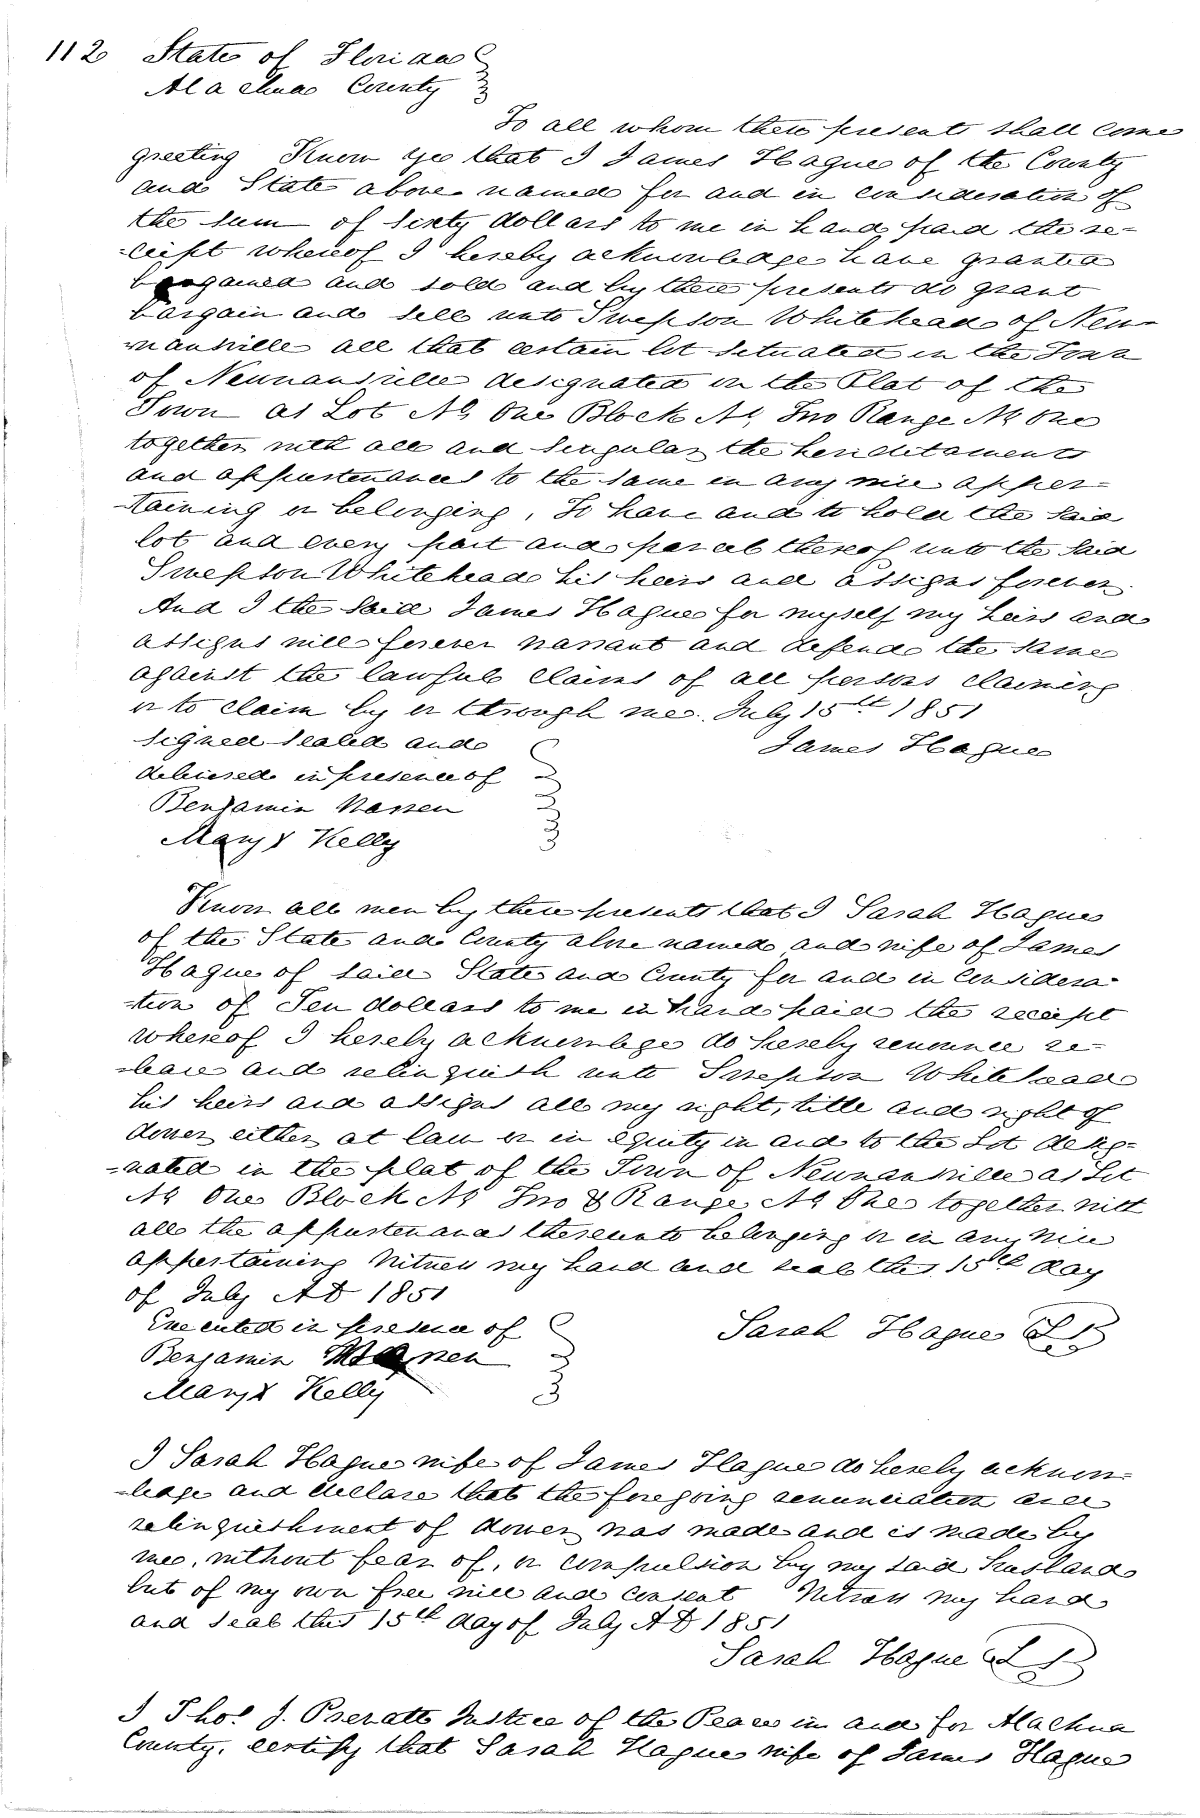 112 State of Florida
Alachua County
To all whom these presents shall come
greeting Know ye that I James Hague of the County
and State above named for and in consideration of
the sum of sixty dollars to me in hand paid the re-
-ceipt whereof I hereby acknowledge have granted
bargained and sold and by these presents do grant
bargain and sell unto Swepson Whitehead of New-
-nansville all that certain lot situated in the Town
of Newnansville designated on the Plat of the
Town as Lot No One Block No Two Range No One
together with all and singular the hereditaments
and appurtenances to the same in any wise apper-
-taining or belonging, To have and to hold the said
lot and every part and parcel thereof unto the said
Swepson Whitehead his heirs and assigns forever.
And I the said James Hague for myself my heirs and
assigns will forever warrant and defend the same
against the lawful claims of all persons claiming
or to claim by or through me. July 15th 1851
Signed Sealed and James Hague
delivered in presence of
Benjamin Warren
Mary X Kelly
Know all men by these presents that I Sarah Hague
of the State and County above named and wife of James
Hague of said State and County for and in considera-
-tion of Ten dollars to me in hand paid the receipt
whereof I hereby acknowledge do hereby renounce re-
-lease and relinquish unto Swepson Whitehead
his heirs and assigns all my right, title and right of
dower either at law or in equity in and to the Lot desig-
-nated in the plat of the Town of Newnansville as Lot
No One Block No Two & Range No One together with
all the appurtenances thereunto belonging or in any wise
appertaining Witness my hand and seal this 15th day
of July AD 1851
Executed in presence of Sarah Hague LS
Benjamin Warren
Mary X Kelly
I Sarah Hague wife of James Hague do hereby acknow-
-ledge and declare that the foregoing renunciation and
relinquishment of dower was made and is made by
me, without fear of, or compulsion by my said husband
but of my own free will and consent Witness my hand
and seal this 15th day of July AD 1851
Sarah Hague LS
I Thos. J. Justice of the Peace in and for Alachua
County, certify that Sarah Hague wife of James Hague